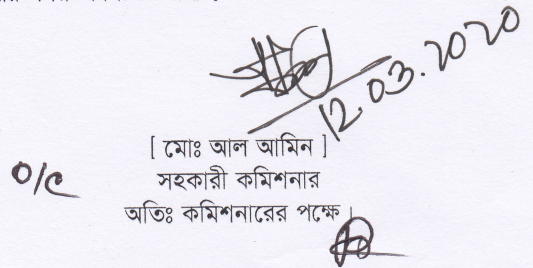 12.03.2020
[ মোঃ আল আমিন ]
O/C
সহকারী কমিশনার
অতিঃ কমিশনারের পক্ষে।